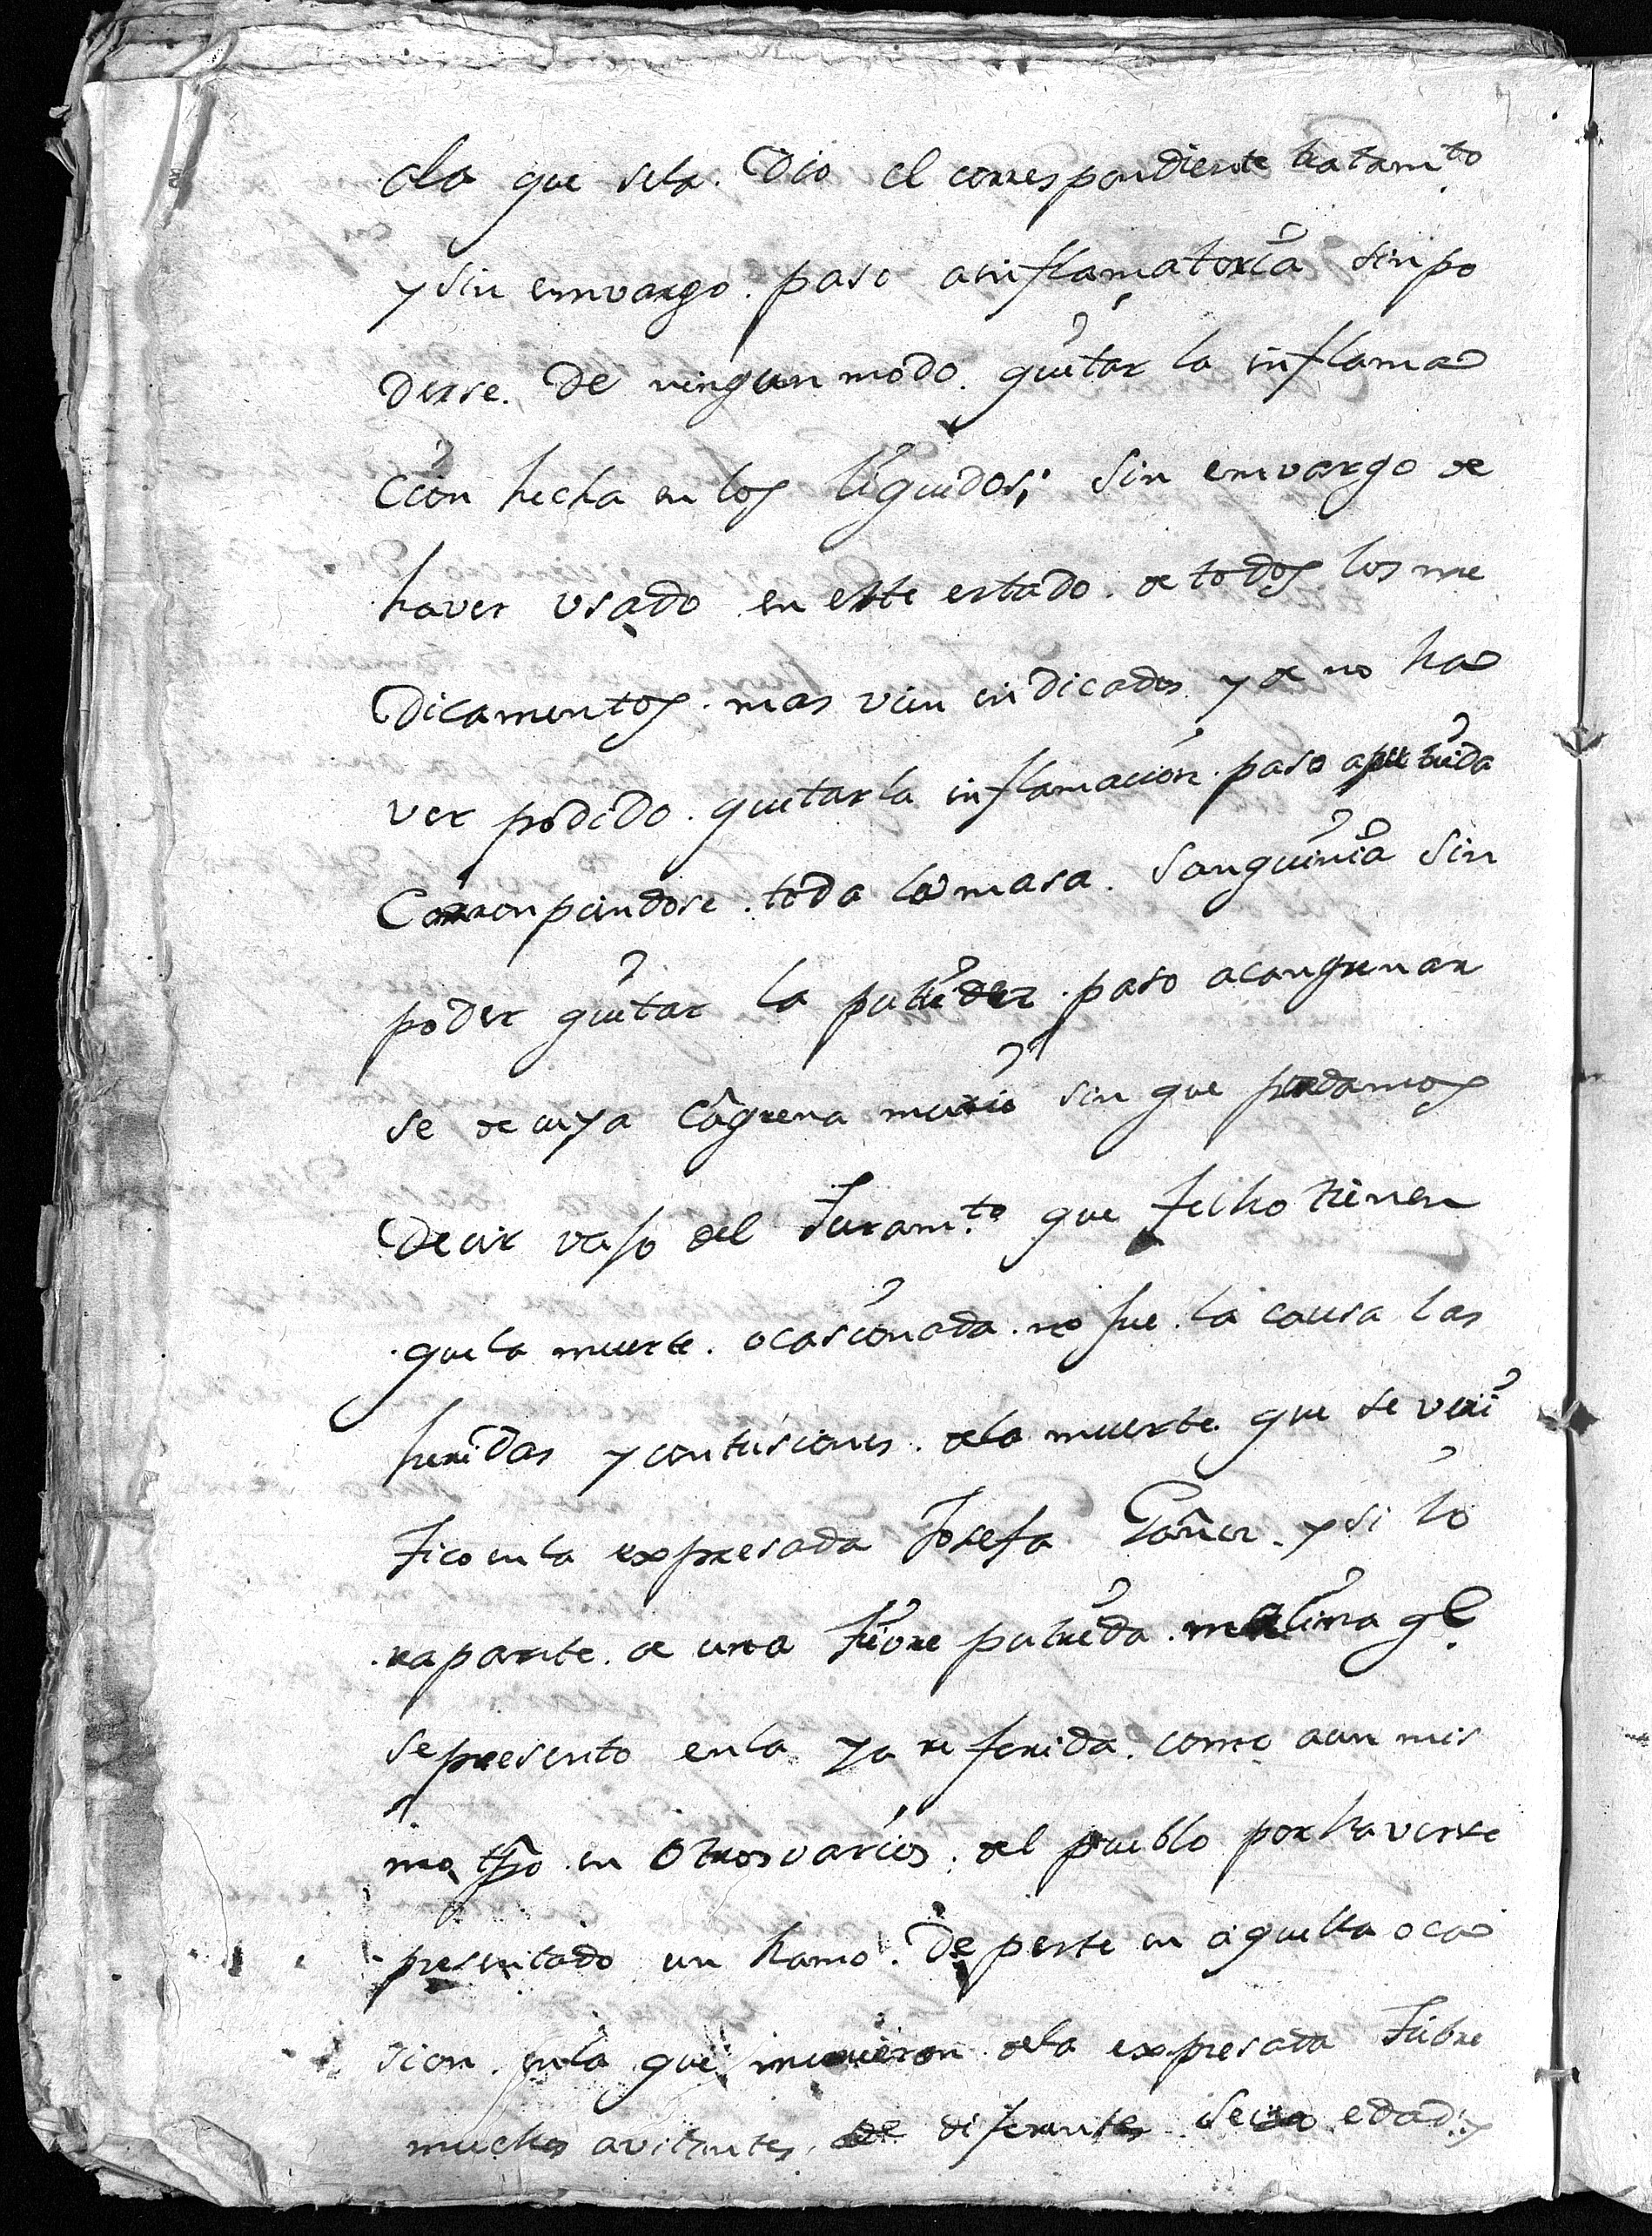 dela que sela. Dio el correspondiente tratam.to
y sin emvargo. paso ainflamatoria sin po
derse. De ningun modo. quitar la inflama
ción hecha en los liquidos; Sin emvargo de
haver usado en este estado. de todos los me
dicamentos. mas vien indicados y de no ha
ver podido. quitar la inflamacion. paso aputrida
Corronpiendose. toda la masa. Sanguinia Sin
poder quitar la putridez. paso acangrenar
se de cuya cãgrena murio sin que podamos
Decir vajo del Juram.to que fecho tienen
que la muerte. ocasionada. no fue. la causa las
heridas y contusiones. dela muerte. que se veri
fico en la expresada Josefa Gañer. y si lo
raparte. de una fievre putrida. malina q.e
se presento en la ya referida. como aun mis
mo tp̃o en otros varios. del pueblo por haverse
presentado un Ramo. De peste en aquella oca
sion. en la que murieron. dela expresada Fiebre
muchos avitantes, de diferentes Secso edad. y